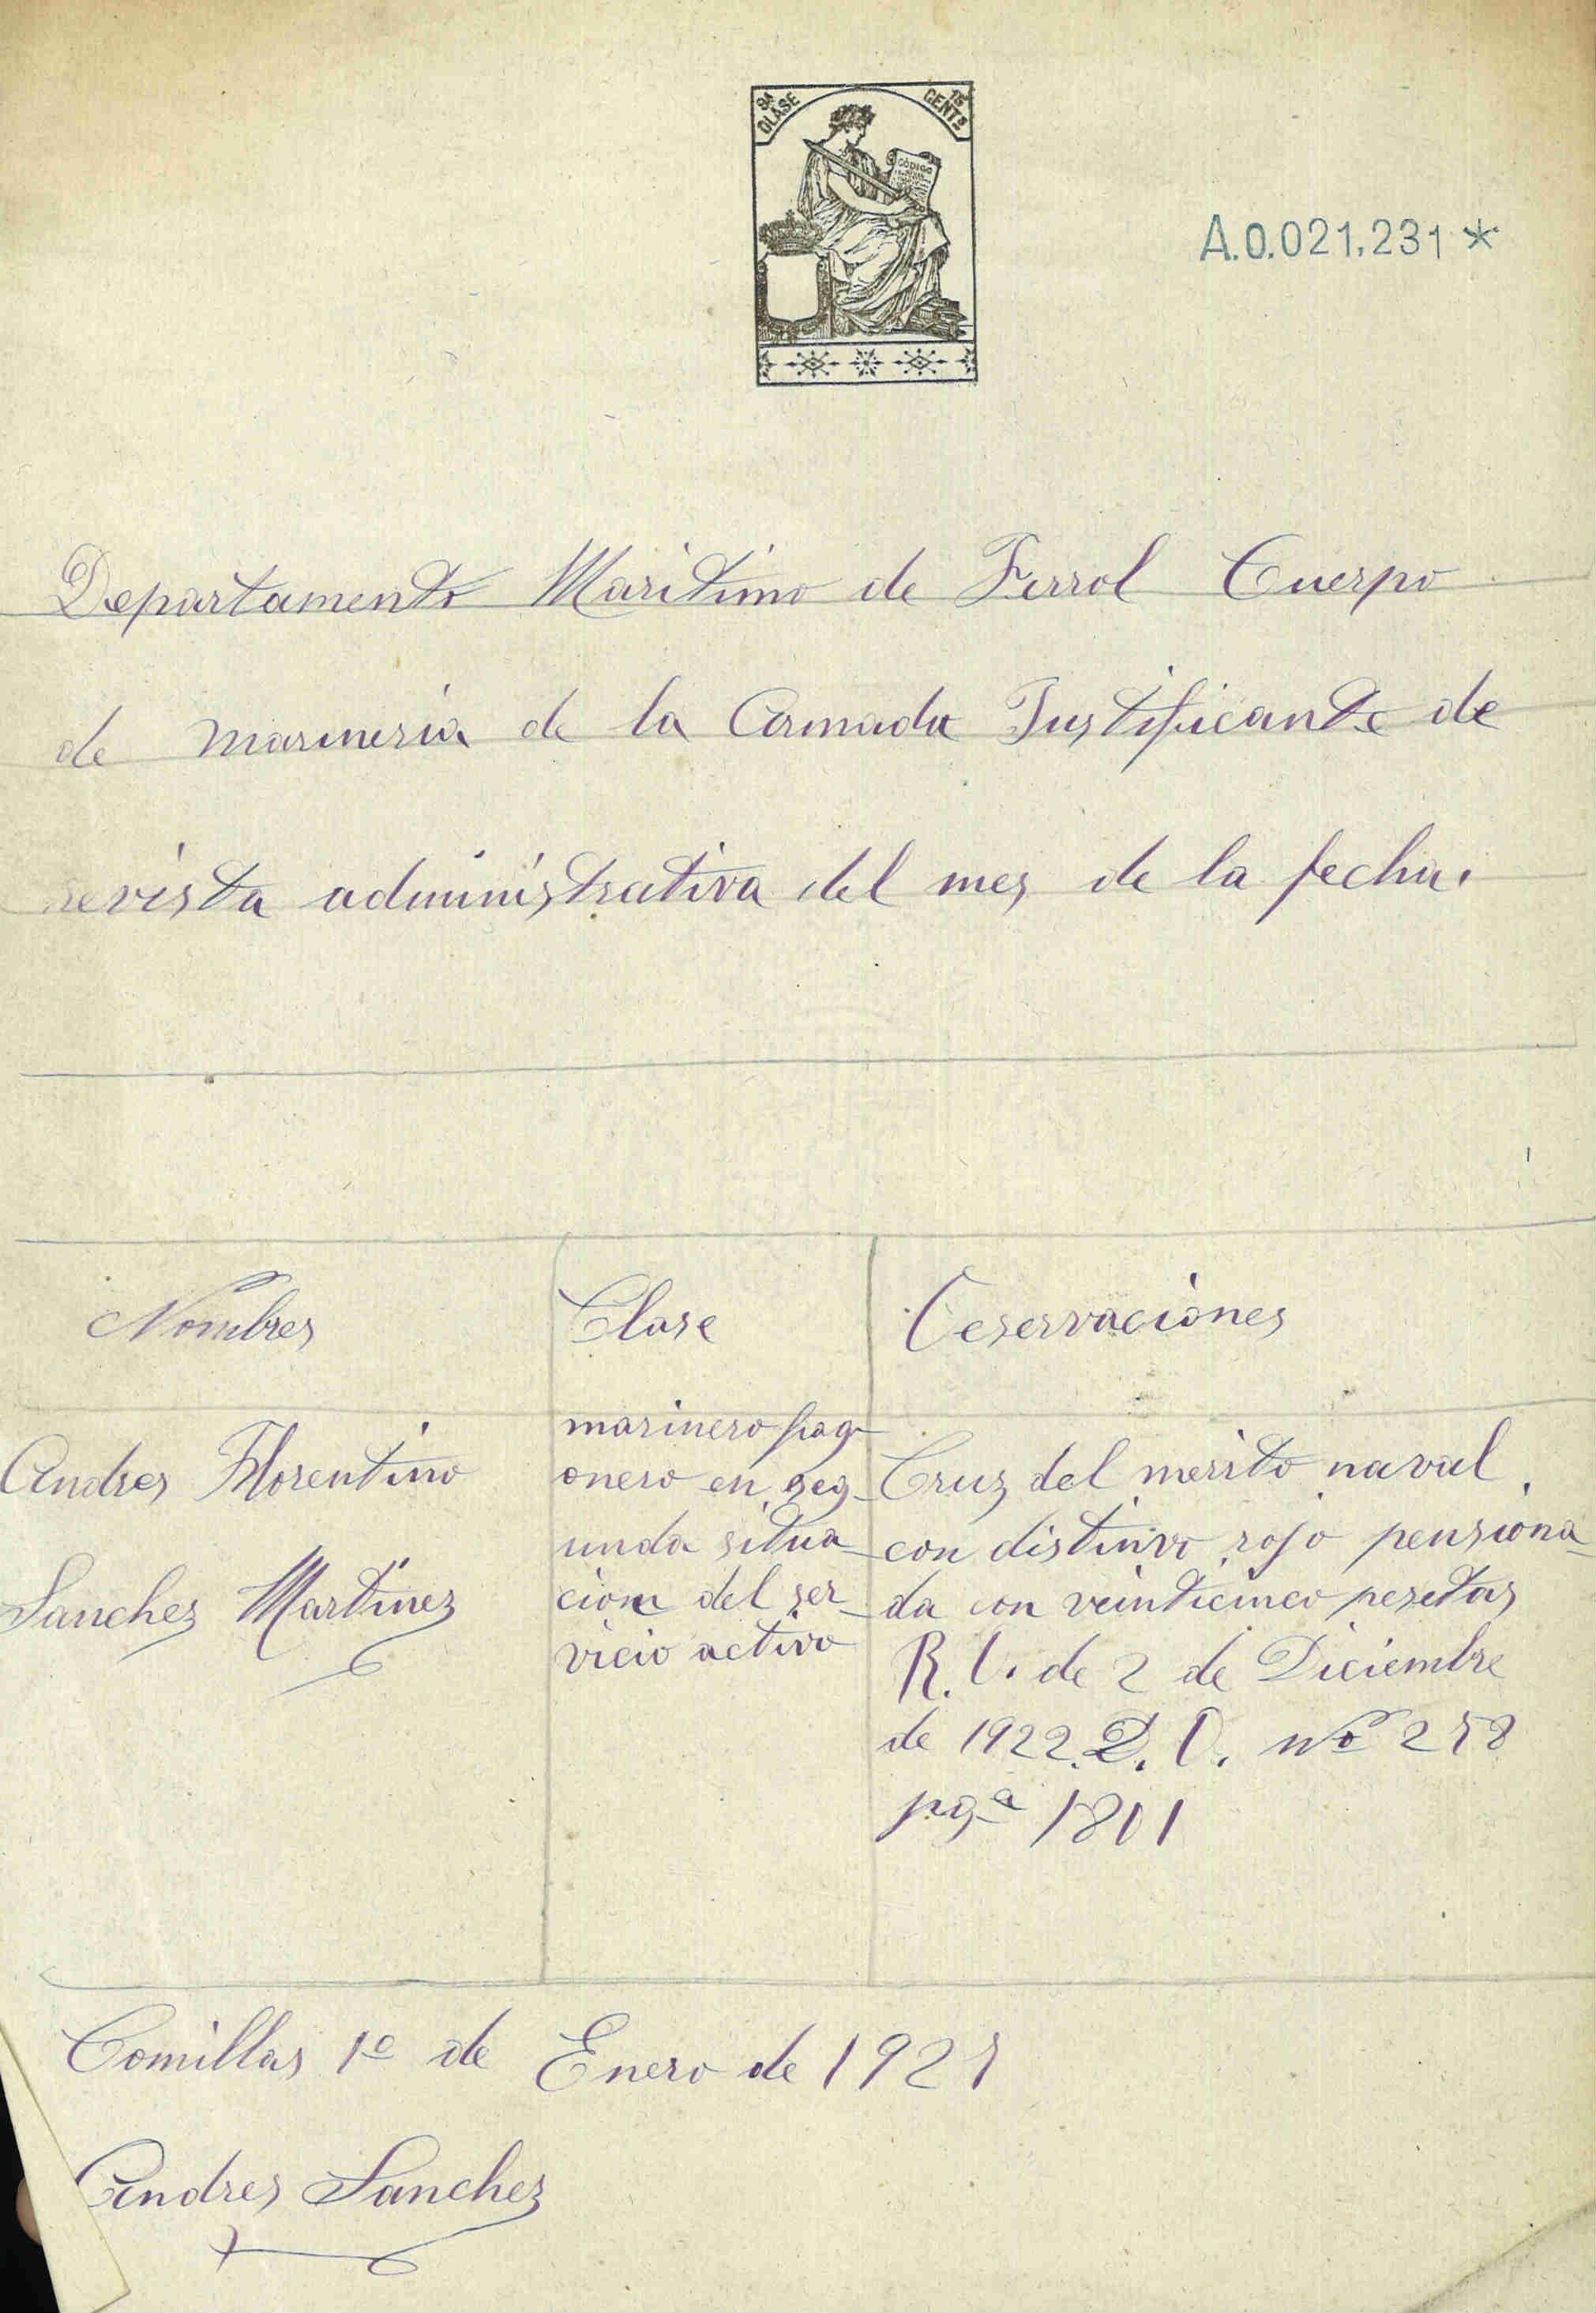 9ª CLASE
15 CENTS
CÓDIGO
A.0.021,231*
Departamento Maritimo de Ferrol Cuerpo
de marineria de la Armada Justificante de
revista administrativa del mes de la fecha.
Nombres Clase Oeservaciones
Andres Florentino
Sanchez Martinez
marinero fog
onero en seg
unda situa
cion del ser
vicio activo
Cruz del merito naval
con distinvo rojo pensiona
da con veinticinco pesetas
R. O. de 2 de Diciembre
de 1922. D. O. nº 278
pgª 1801
Comillas 1º de Enero de
Andres Sanchez